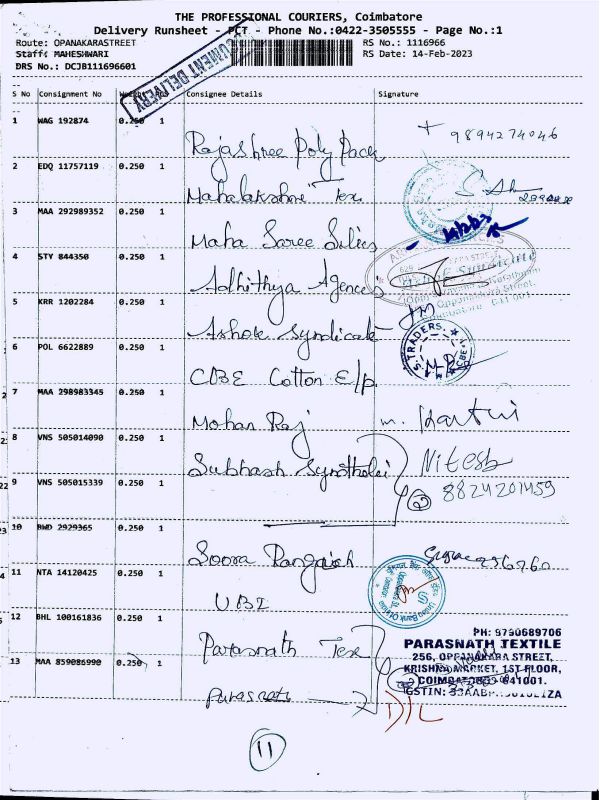 THE PROFESSIONAL COURIERS, Coimbatore
Delivery Runsheet - PCT - Phone No.:0422-3505555 - Page No.:1
Route: OPANAKARASTREET
RS No.: 1116966
Staff: MAHESHWARI
RS Date: 14-Feb-2023
DRS No.: DCJB111696601
DOCUMENT DELIVERY
S No Consignment No Weight Pcs Consignee Details Signature
1 WAG 192874 0.250 1 Rajashree Poly Pack 9894274046
2 EDQ 11757119 0.250 1 Mahalakshmi Tex
3 MAA 292989352 0.250 1 Maha Saree Sales
4 STY 844350 0.250 1 Adhithya Agencies
5 KRR 1202284 0.250 1 Ashok Syndicate
Syndicate
Oppanakara Street,
641 001.
6 POL 6622889 0.250 1 CBE Cotton E/p
S. TRADERS. CBE
7 MAA 298983345 0.250 1 Mohan Raj
8 VNS 505014090 0.250 1 Subhash Nitesh
9 VNS 505015339 0.250 1 8824201459
10 BWD 2929365 0.250 1 Soora
11 NTA 14120425 0.250 1 UBI
Union Bank
12 BHL 100161836 0.250 1 Parasnath Tex
13 MAA 859086990 0.250 1 Parasnath
PH: 9790689706
PARASNATH TEXTILE
256, OPPANAKARA STREET,
KRISHNA MARKET, 1ST FLOOR,
COIMBATORE-641001.
GSTIN:
11